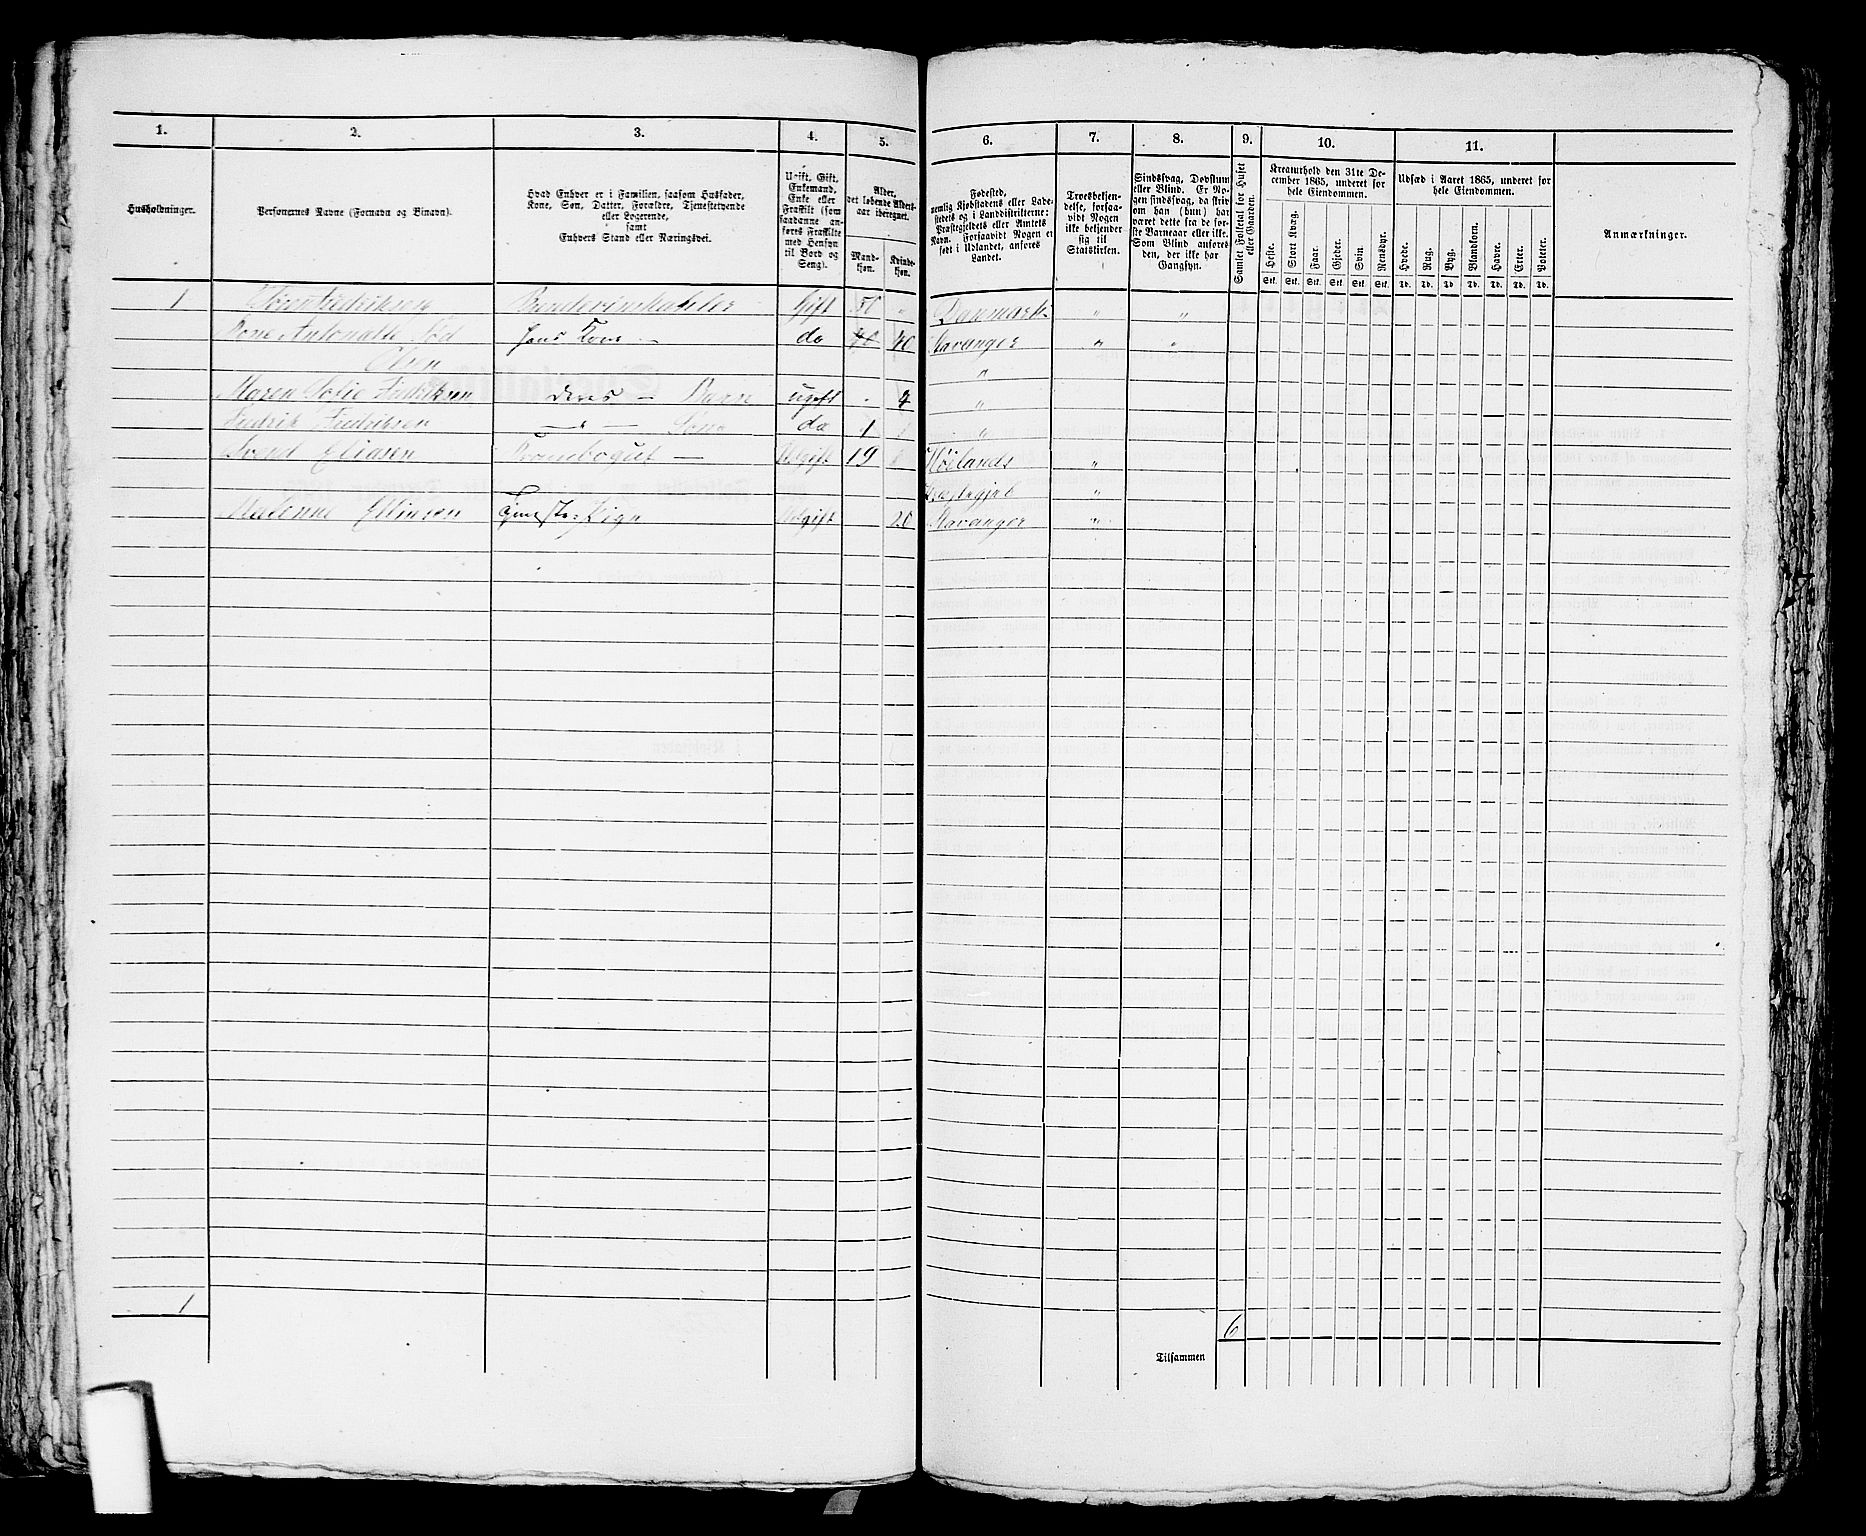 1. 2. 3. 4. 5. 6. 7. 8. 9. 10. 11.
Husholdninger.
Personernes Navne (Fornavn og Binavn).
Hvad Enhver er i Familien, saasom Husfader,
Kone, Søn, Datter, Forældre, Tjenestetyende
eller Logerende,
samt
Enhvers Stand eller Næringsvei.
Ugift, Gift,
Enkemand,
Enke eller
Fraskilt (som
saadanne an-
føres Fraskilte
med Hensyn
til Bord og
Seng).
Alder,
det løbende Alders-
aar iberegnet.
Mand-
kjøn.
Kvinde-
kjøn.
Fødested,
nemlig Kjøbstadens eller Lade-
stedets og i Landdistrikterne:
Præstegjeldets eller Amtets
Navn. Forsaavidt Nogen er
født i Udlandet, anføres
Landet.
Troesbekjen-
delse, forsaa-
vidt Nogen
ikke bekjender
sig til
Statskirken.
Sindssvag, Døvstum
eller Blind. Er No-
gen sindssvag, da skriv
om han (hun) har
været dette fra de før-
ste Barneaar eller ikke.
Som Blind anføres
den, der ikke har
Gangsyn.
Samlet Folketal for Huset
eller Gaarden.
Kreaturhold den 31te De-
cember 1865, underet for
hele Eiendommen.
Heste.
Stort Kvæg.
Faar.
Gjeder.
Svin
Rensdyr.
Stk. Stk. Stk. Stk. Stk. Stk.
Udsæd i Aaret 1865, underet for
hele Eiendommen.
Hvede.
Rug.
Byg.
Blandkorn.
Havre.
Erter.
Poteter.
Td. Td. Td. Td. Td. Td. Td.
Anmærkninger.
1 Fredriksen Gift 50 „ Danmark „ „
Antonatte Fød hans Kone — do 40 Stavanger „ „
Olsen „
Maren Sofie Fredriksen deres — Barn ugift - 4 „
Fredrik Fredriksen — " — Søn do 1 „
Svend Eliasen — Ugift 19 Høilands „
Præstegjeld „
Malenne Ellingsen Tjeneste Pige Ugift 20 Stavanger „
1
6
Tilsammen